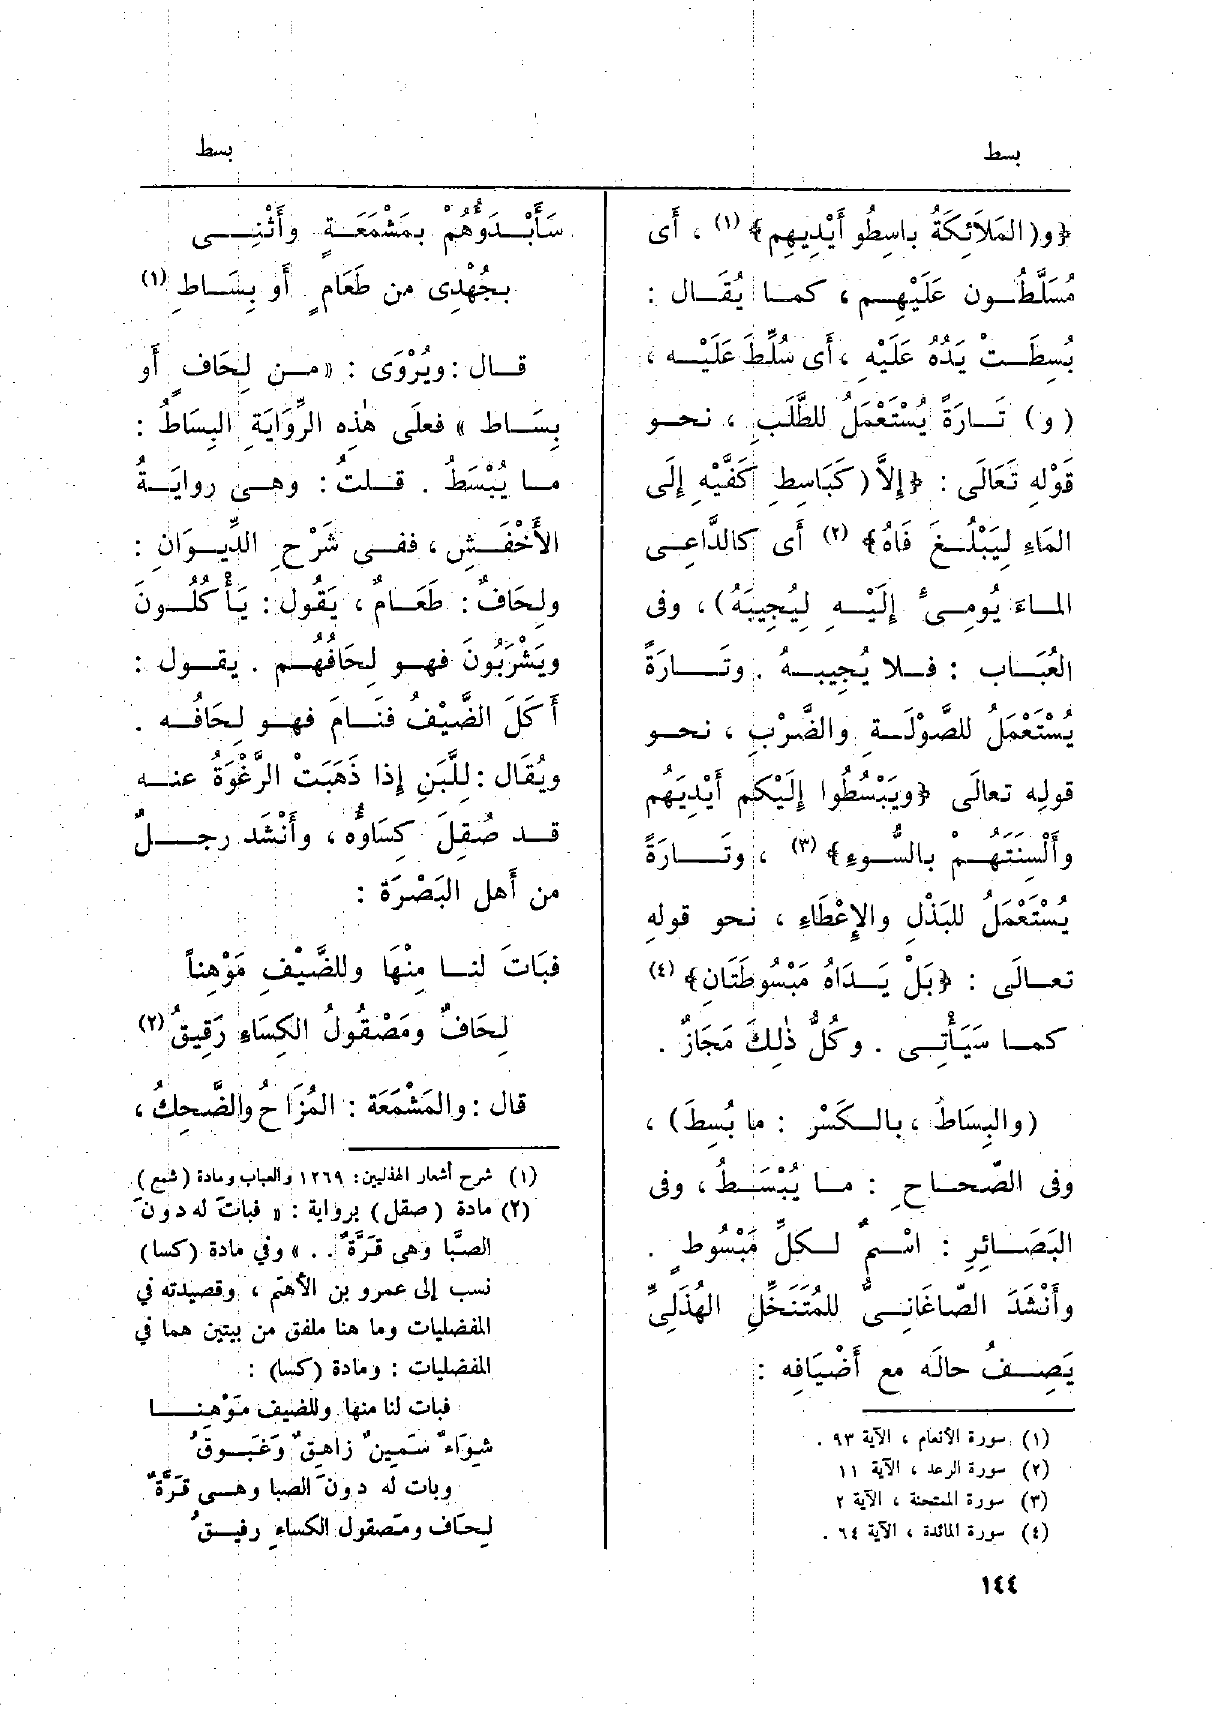 بسط
بسط
﴿و(المَلاَئِكَةُ باسِطُو أَيْدِيهِم﴾ (١) ، أَى
مُسَلَّطُون عَلَيْهِم ، كما يُقَال :
بُسِطَتْ يَدُهُ عَلَيْهِ ، أَى سُلِّطَ عَلَيْه ،
(و) تَارَةً يُسْتَعْمَلُ للطَّلَبِ ، نحو
قَوْلِه تَعَالَى : ﴿إِلاَّ (كَبَاسِطِ كَفَّيْهِ إِلَى
المَاءِ لِيَبْلُغَ فَاهُ﴾ (٢) أَى كالدَّاعِى
الماءَ يُومِىءُ إِلَيْهِ لِيُجِيبَهُ) ، وفى
العُبَاب : فلا يُجِيبهُ . وتَارَةً
يُسْتَعْمَلُ للصَّوْلَةِ والضَّرْبِ ، نحو
قولِه تعالَى ﴿ويَبْسُطُوا إِلَيْكم أَيْدِيَهُم
وأَلْسِنَتَهُمْ بالسُّوءِ﴾ (٣) ، وتَارَةً
يُسْتَعْمَلُ للبَذْلِ والإِعْطَاءِ ، نحو قولِه
تعالَى : ﴿بَلْ يَدَاهُ مَبْسُوطَتَان﴾ (٤)
كما سَيَأْتِى . وكُلُّ ذٰلِكَ مَجَازٌ .
(والبِسَاطُ ، بالكَسْرِ : ما بُسِطَ) ،
وفى الصّحاحِ : ما يُبْسَطُ ، وفى
البَصَائِرِ : اسْمٌ لكلِّ مَبْسُوطٍ .
وأَنْشَدَ الصّاغَانِىُّ للمُتَنَخِّلِ الهُذَلِىِّ
يَصِفُ حالَه مع أَضْيَافِه :
(١) سورة الأنعام ، الآية ٩٣ .
(٢) سورة الرعد ، الآية ١١
(٣) سورة الممتحنة ، الآية ٢
(٤) سورة المائدة ، الآية ٦٤ .
١٤٤
سَأَبْدَؤُهُمْ بِمَشْمَعَةٍ وأَثْنِى
بجُهْدِى من طَعَامٍ أَو بِسَاطِ (١)
قال : ويُرْوَى : « من لِحَافٍ أَو
بِسَاط » فعلَى هٰذِه الرِّوَايَةِ البِسَاطُ :
ما يُبْسَطُ . قلتُ : وهى روايَةُ
الأَخْفَشِ ، ففى شَرْحِ الدِّيوَانِ :
ولِحَافٌ : طَعَامٌ ، يَقُول : يَأْكُلُونَ
ويَشْرَبُونَ فهو لِحَافُهُم . يقول :
أَكَلَ الضَّيْفُ فنَامَ فهو لِحَافُه .
ويُقَال : لِلَّبَنِ إِذا ذَهَبَتْ الرَّغْوَةُ عنه
قد صُقِلَ كِسَاؤُه ، وأَنْشَد رجلٌ
من أَهل البَصْرَة :
فبَاتَ لنا مِنْهَا وللضَّيْفِ مَوْهِناً
لِحَافٌ ومَصْقُولُ الكِسَاءِ رَقِيقُ (٢)
قال : والمَشْمَعَة : المُزَاحُ والضَّحِكُ ،
(١) شرح أشعار الهذليين: ١٢٦٩ والعباب ومادة (شمع) .
(٢) مادة (صقل) برواية : « فباتَ له دونَ
الصَّبا وهى قَرَّةٌ . . » وفي مادة (كسا)
نسب إلى عمرو بن الأهتم ، وقصيدته في
المفضليات وما هنا ملفق من بيتين هما في
المفضليات : ومادة (كسا) :
فبات لنا منها وللضيف مَوْهِنا
شِوَاءٌ سَمِينٌ زاهقٌ وَغَبوقُ
وبات له دونَ الصبا وهى قَرَّةٌ
لِحاف ومصقول الكساءِ رقيقُ